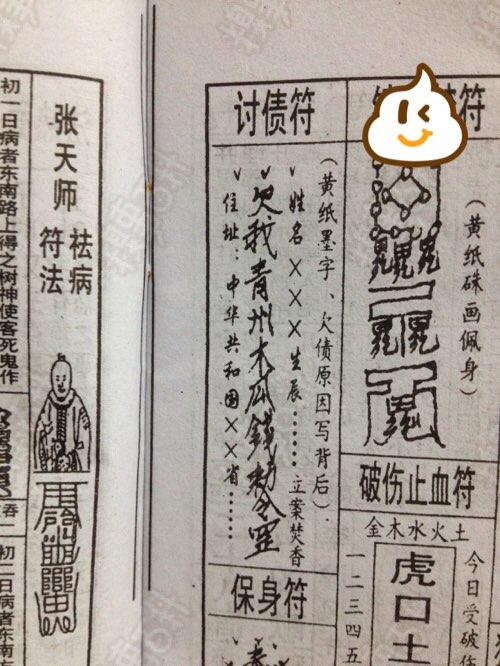 张天师
祛病
符法
初一日病者东南路上得之树神使客死鬼作
吞
初二日病者东南
讨债符
（黄纸墨字、欠债原因写背后）
姓名×××生辰……立案焚香
欠我青州木瓜錢勅令
住址：中华共和国××省……
保身符
符
（黄纸硃画佩身）
破伤止血符
金木水火土
今日受破伤
虎口土
一二三四五